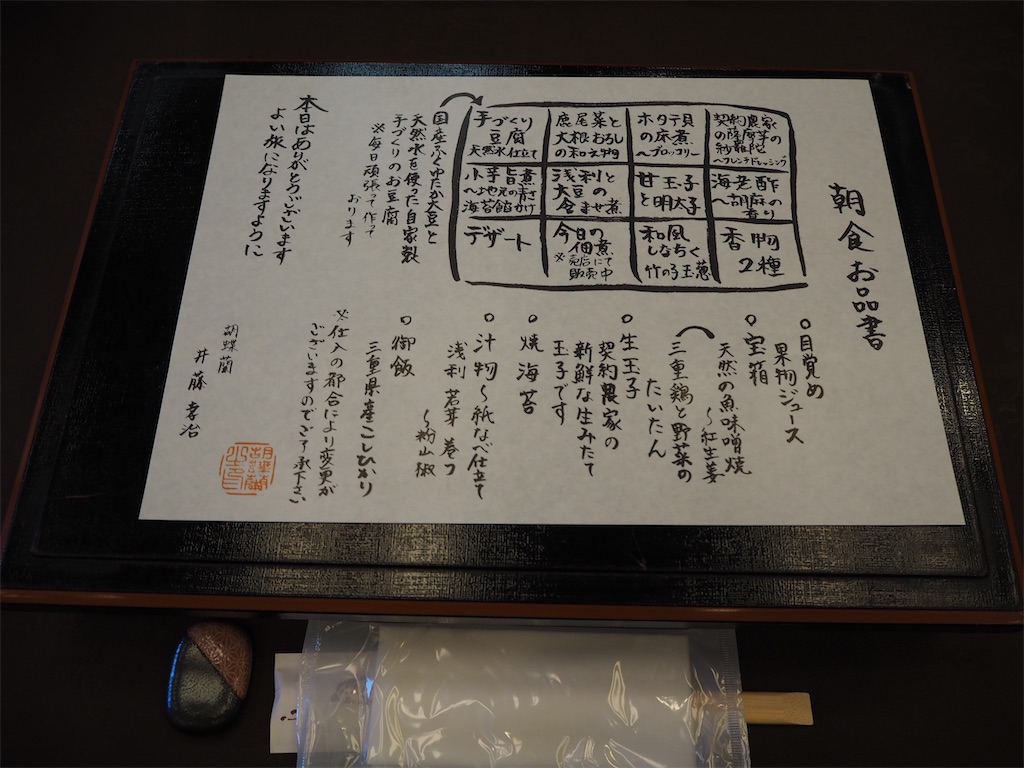 朝食お品書
契約農家
の薩摩芋の
〜フレンチドレッシング
ホタテ貝
の床煮
〜ブロッコリー
鹿尾菜と
大根おろし
の和え物
手づくり
豆腐
天然水仕立て
海老酢
〜胡麻の
香り
甘玉子
と明太子
浅利と
大豆の
含ませ煮
小芋旨煮
〜地元の青さ
海苔餡かけ
香物
2種
和風
しなちく
竹の子玉葱
今日の
佃煮
※売店にて
販売中
デザート
国産ふくゆたか大豆と
天然水を使った自家製
手づくりのお豆腐
※毎日頑張って作って
おります
本日はありがとうございます
よい旅になりますように
○目覚め
果物ジュース
○宝箱
天然の魚味噌焼
〜紅生姜
三重鶏と野菜の
たいたん
○生玉子
契約農家の
新鮮な生みたて
玉子です
○焼海苔
○汁物〜紙なべ仕立て
浅利 若芽 巻フ
〜粉山椒
○御飯
三重県産こしひかり
※仕入の都合により変更が
ございますのでご了承下さい
胡蝶蘭
井藤孝治